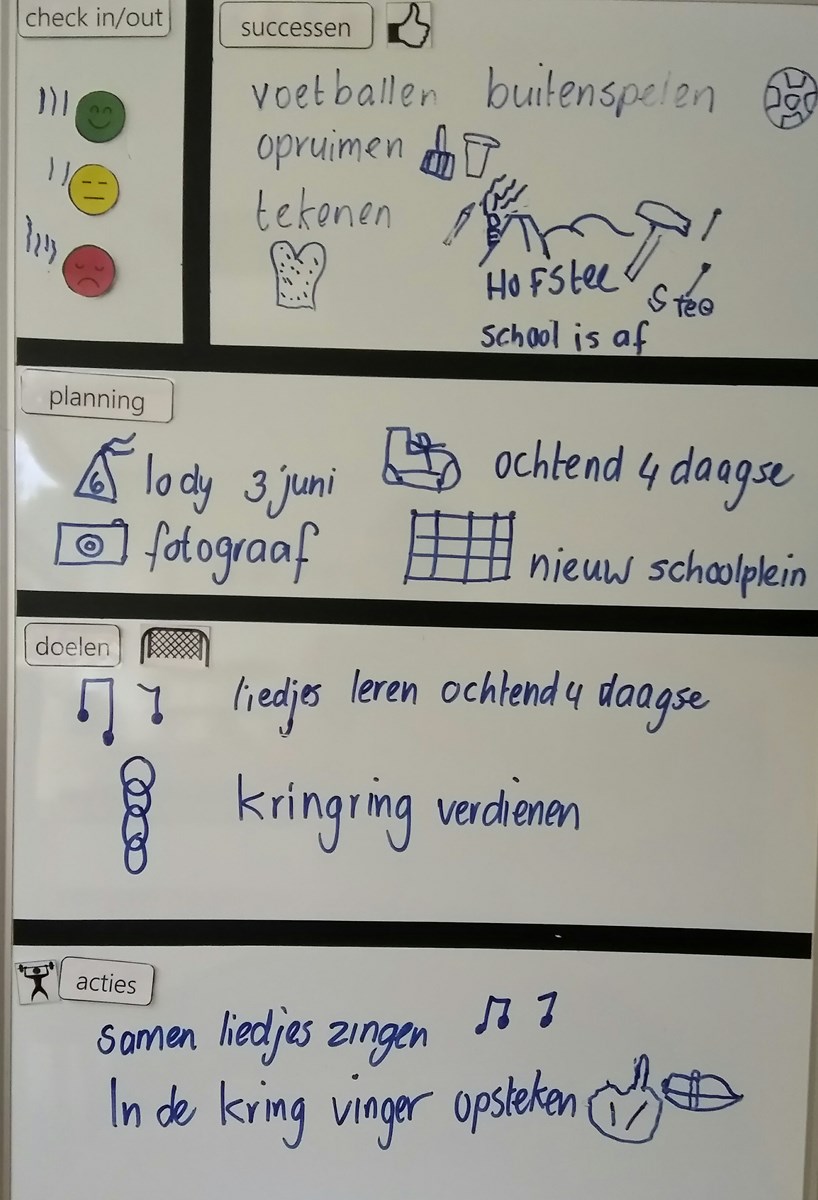 check in/out
successen
voetballen buitenspelen
opruimen
tekenen
HOFStee
Stee
School is af
planning
6 lody 3 juni
ochtend 4 daagse
fotograaf
nieuw schoolplein
doelen
liedjes leren ochtend 4 daagse
kringring verdienen
acties
Samen liedjes zingen
In de kring vinger opsteken